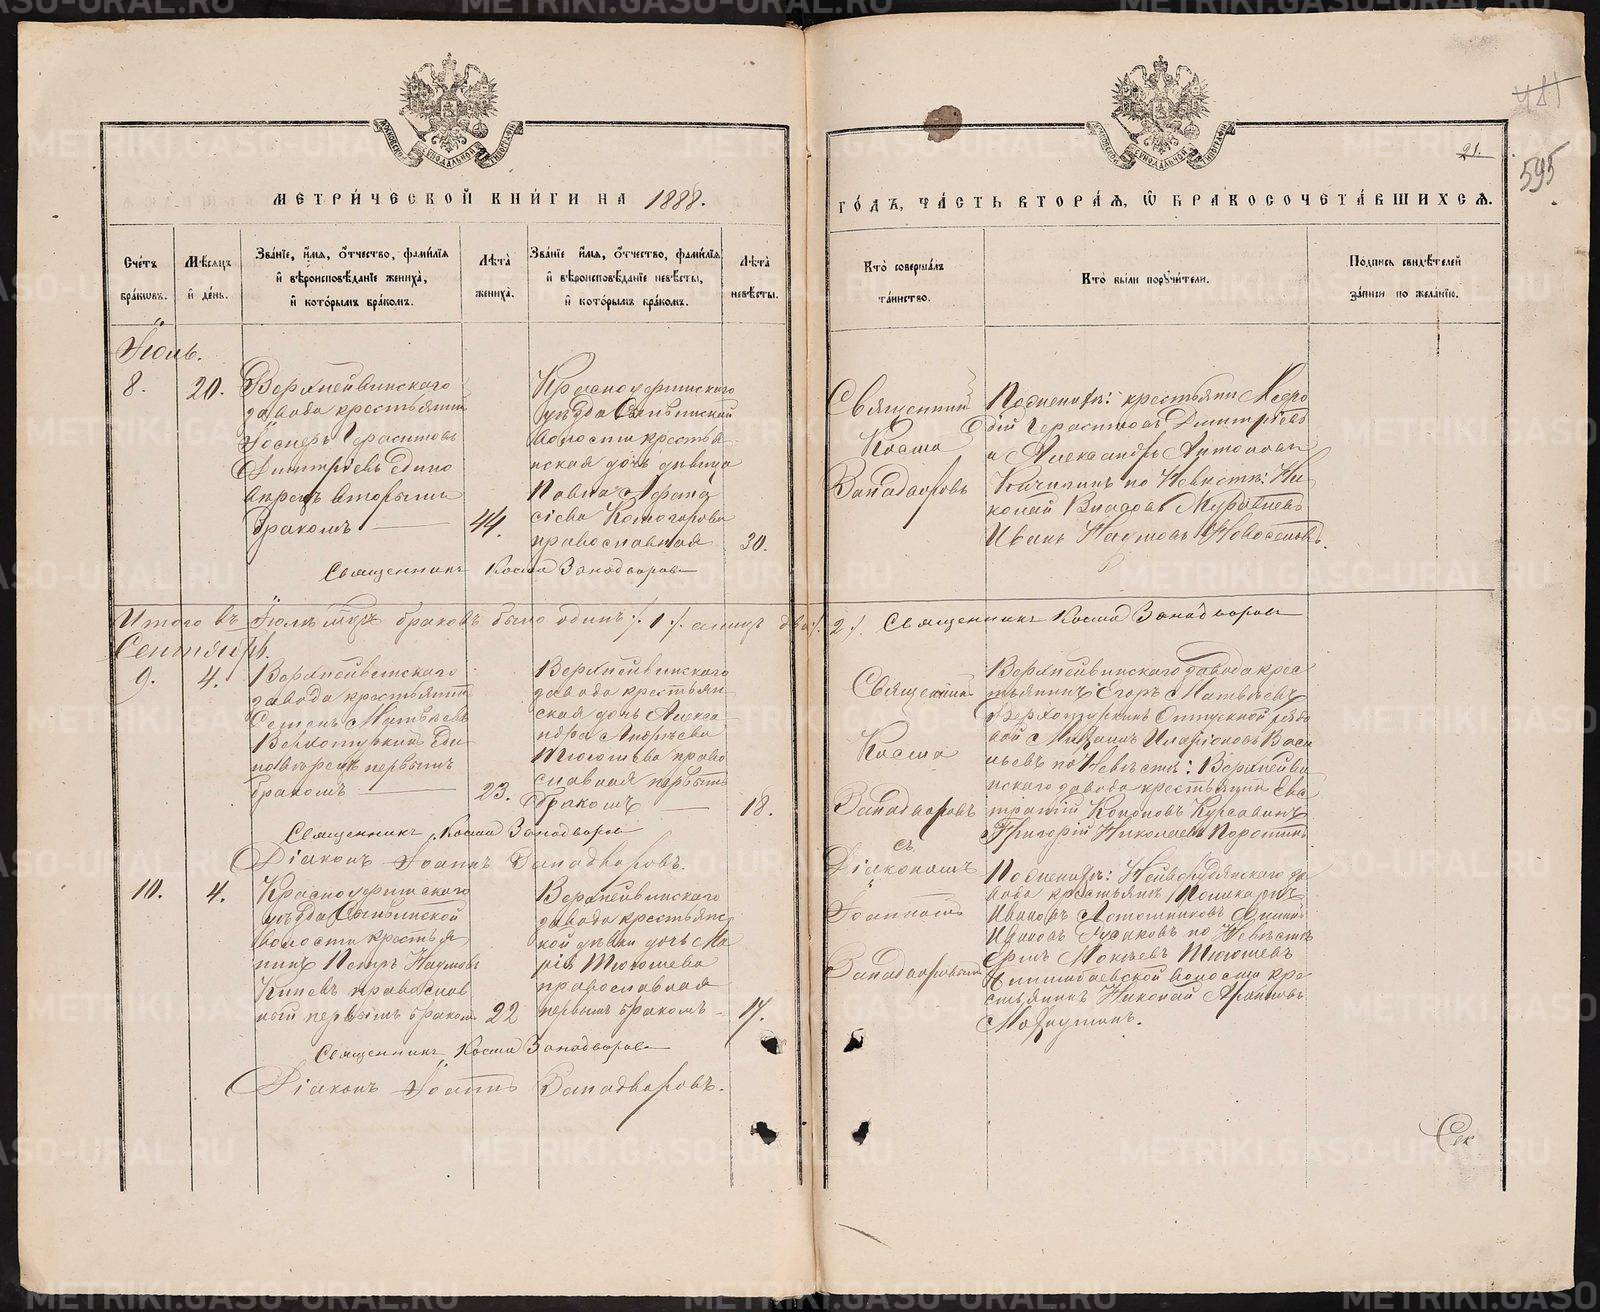 МЕТРИ́ЧЕСКОЙ КНИ́ГИ НА 1888.
ГО́ДЪ, ЧА́СТЬ ВТОРА́Я, Ѿ БРАКОСОЧЕТА́ВШИХСЯ.
21.
595
Сче́тъ бра́кѡвъ.
Мѣ́сяцъ и҆ де́нь.
Зва́нїе, и҆́мя, ѻ҆́тчество, фами́лїя и҆ вѣроисповѣ́данїе жениха̀, и҆ кото́рымъ бра́комъ.
Лѣ́та жениха̀.
Зва́нїе и҆́мя, ѻ҆́тчество, фами́лїя и҆ вѣроисповѣ́данїе невѣ́сты, и҆ кото́рымъ бра́комъ.
Лѣ́та невѣ́сты.
Кто̀ соверша́лъ та́инство.
Кто̀ бы́ли порꙋчи́тели.
По́дпись свидѣ́телей за́писи по жела́нїю.
Іюль.
8.
20.
Верхнейвинскаго
завода крестьянинъ
Герасимовъ
Дмитріевъ едино
вѣрецъ вторымъ
бракомъ
44.
Красноуфимскаго
уѣзда Сылвинской
волости крестья-
нская дочь дѣвица
Павла
православная
30.
Священникъ
Косма
Западворовъ
крестьяни
Герасимовъ Дмитріевъ
и Александръ Антоновъ
по Невѣстѣ: Ни
колай Власовъ Муравьевъ
Иванъ Наумовъ Новоселовъ.
Священникъ Косма Западворовъ
Итого въ Іюлѣ мѣсяцѣ браковъ было одинъ /. 1 /. а лицъ два /. 2 /. Священникъ Косма Западворовъ
Сентябрь.
9.
4.
Верхнейвинскаго
завода крестьянинъ
Семенъ Матвѣевъ
Верхотуркинъ Еди
новѣрецъ первымъ
бракомъ
23.
Верхнейвинскаго
завода крестьян
ская дочь Алекса
ндра Андрѣева
Тюгошева право
славная первымъ
бракомъ
18.
Священникъ
Косма
Западворовъ
съ
Діакономъ
Іоанномъ
Западворовымъ
Верхнейвинскаго завода крес
тьянинъ Егоръ Матвѣевъ
Верхотуркинъ Отпускной рядо
вой Михаилъ Иларіоновъ Васи
льевъ по Невѣстѣ: Верхнейви
нскаго завода крестьяни Евс
тратій Кононовъ Курсавинъ
Григорій Николаевъ
Священникъ Косма Западворовъ
Діаконъ Іоаннъ Западворовъ.
10.
4.
Красноуфимскаго
уѣзда Сылвинской
волости крестья
нинъ Петръ Наумовъ
Киневъ православ
ный первымъ бракомъ
22
Верхнейвинскаго
завода крестьянс
кой дѣвки дочь Ма
рія Тюгошева
православная
первымъ бракомъ
17.
По женихѣ: Нейворудянскаго за
вода крестьянъ Поликарпъ
Ивановъ
Ивановъ Гусаковъ по Невѣстѣ
Мокѣевъ Тюгошевъ
волости кре
стьянинъ Николай
Священникъ Косма Западворовъ
Діаконъ Іоаннъ Западворовъ.
Сек
METRIKI.GASO-URAL.RU